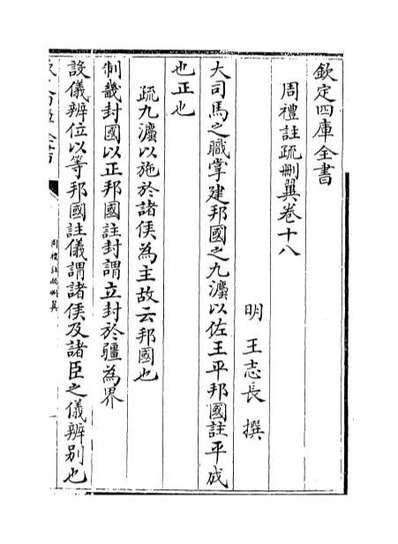 欽定四庫全書
周禮註疏刪翼卷十八
明 王志長 撰
大司馬之職掌建邦國之九灋以佐王平邦國註平成
也正也
疏九灋以施於諸侯為主故云邦國也
制畿封國以正邦國註封謂立封於疆為界
設儀辨位以等邦國註儀謂諸侯及諸臣之儀辨別也
周禮註疏刪翼